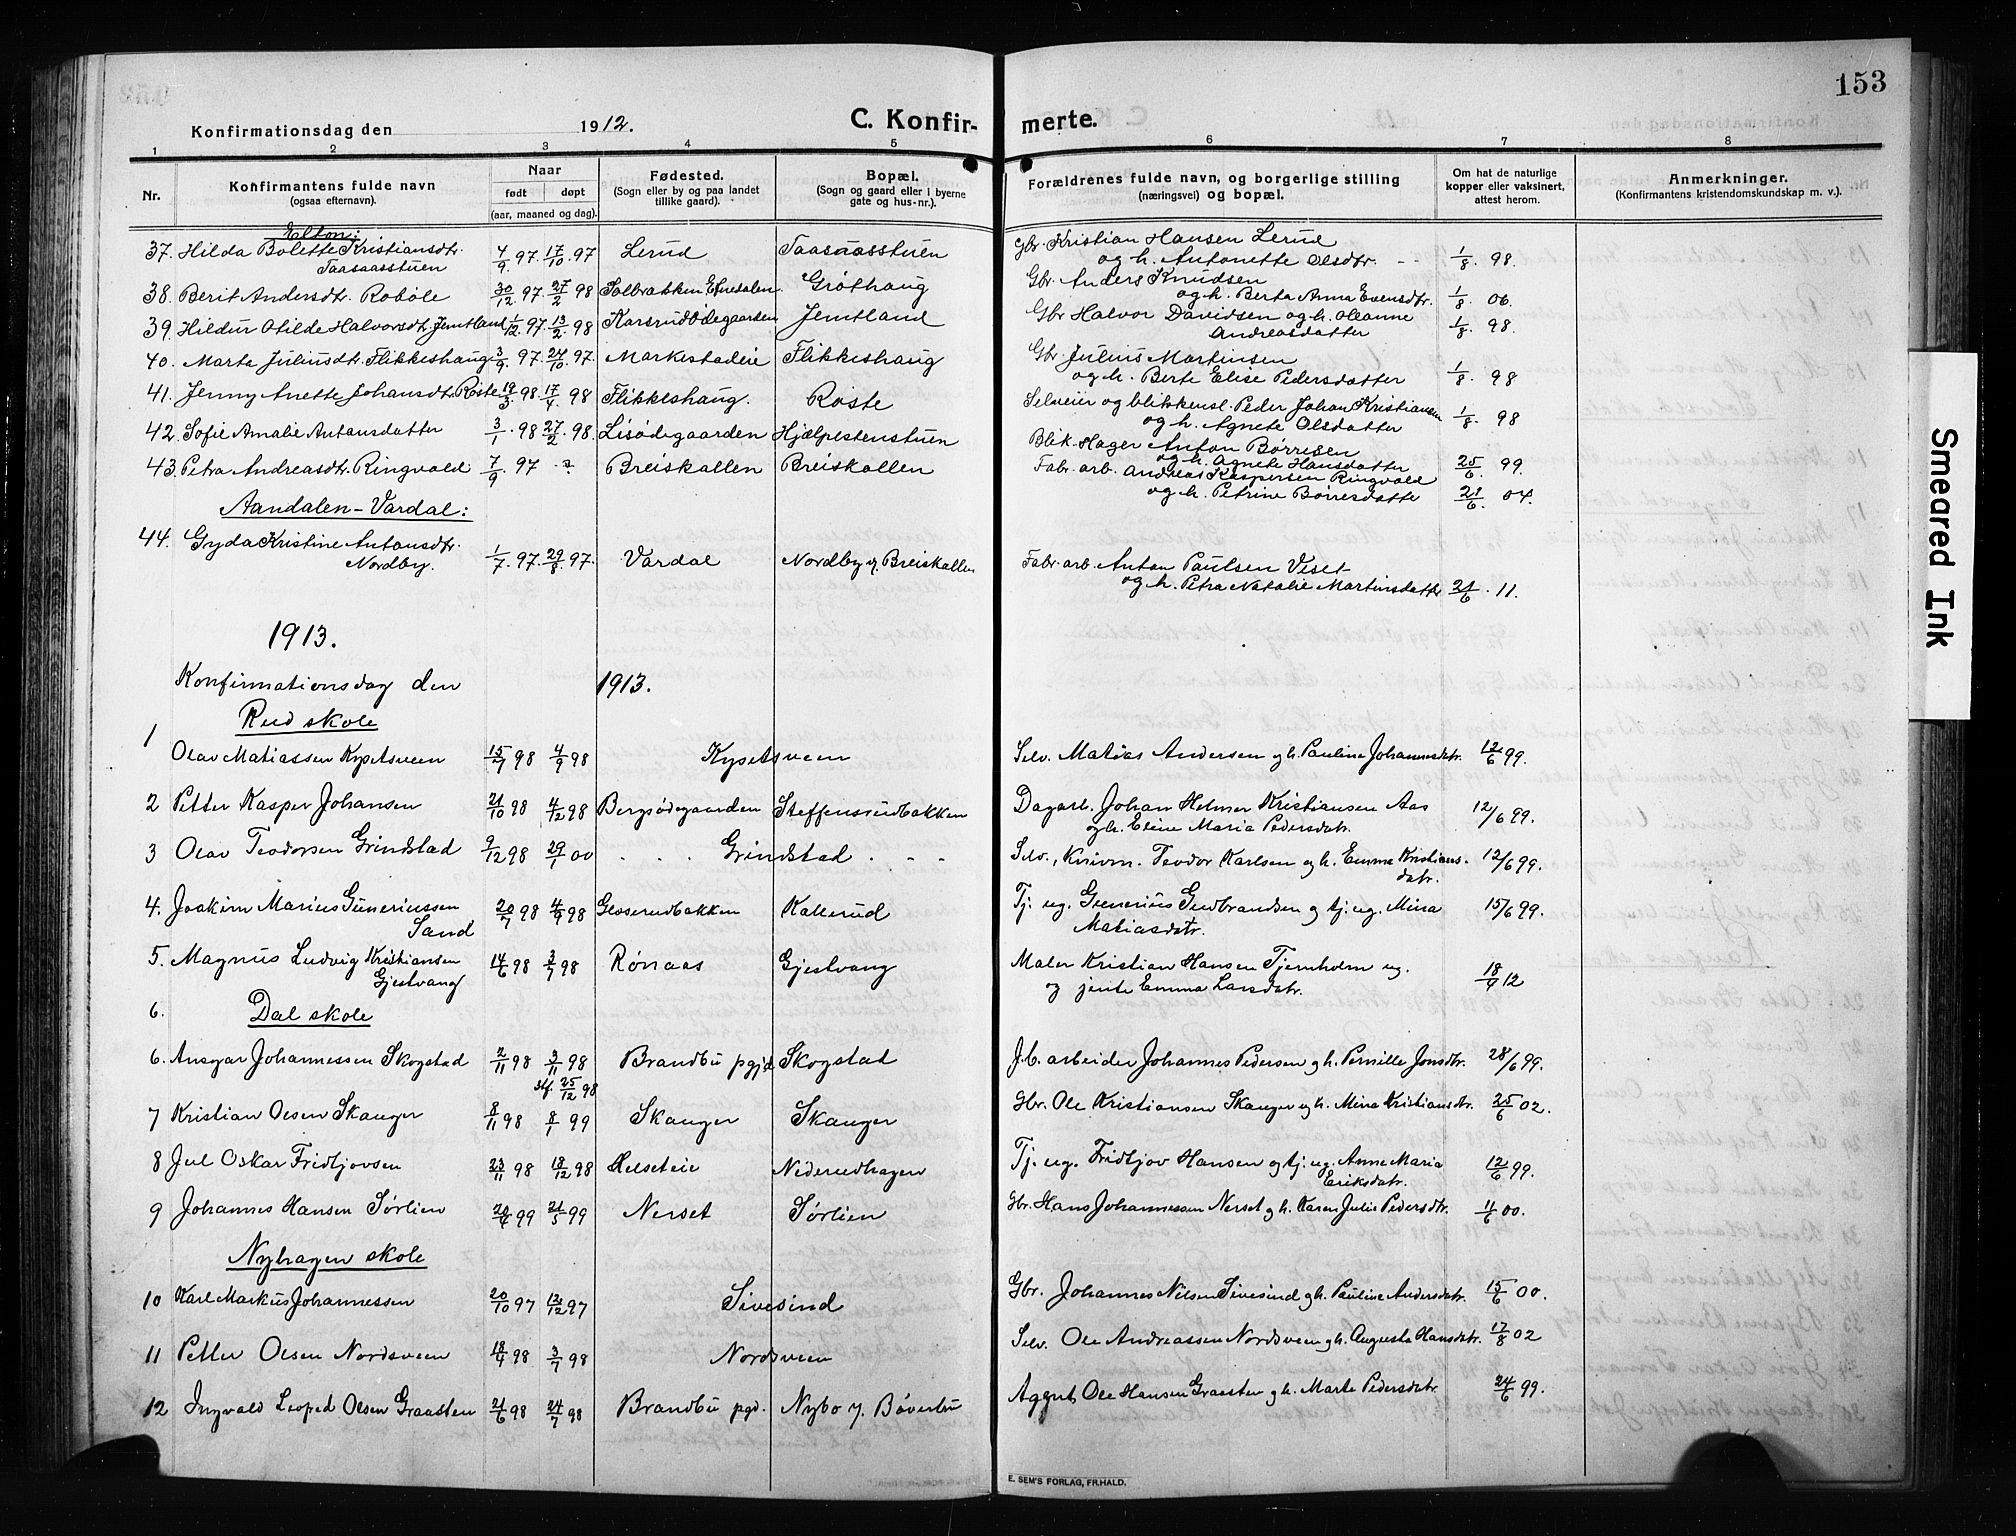 153
Konfirmationsdag den 1912.
C. Konfirmerte.
1 2 3 4 5 6 7 8
Nr.
Konfirmantens fulde navn
(ogsaa efternavn).
Naar
født døpt
(aar, maaned og dag).
Fødested.
(Sogn eller by og paa landet
tillike gaard).
Bopæl.
(Sogn og gaard eller i byerne
gate og hus-nr.).
Forældrenes fulde navn, og borgerlige stilling
(næringsvei) og bopæl.
Om hat de naturlige
kopper eller vaksinert,
attest herom.
Anmerkninger.
(Konfirmantens kristendomskundskap m. v.).
Elton:
37. Hilda Bolette Kristiansdtr. 4/9 97. 17/10 97 Lerud Taasaasstuen Gbr. Kristian Hansen Lerud
Taasaasstuen og h. Antonette Olsdtr. 1/8 98.
38. Berit Andersdt. Robøle 30/12 97. 27/2 98 Solbrækken Grøthaug Gbr. Anders Knudsen
og h. Berta Anna Evensdtr. 1/8 06.
39. Hildur Otilde Halvorsdt. Jemtland 1/12 97. 13/2 98 Karsrudødegaarden Jemtland Gbr Halvor Davidsen og h. Oleanne
Andreasdatter 1/8 98.
40. Marta Juliusdt. Flikkeshaug 3/9 97 24/10 97. Markestadeie Flikkeshaug Gbr. Julius Martinsen
og h. Berte Elise Pedersdatter 1/8 98
41. Jenny Anette Johansdt. Røste 19/3 98 17/4 98 Flikkeshaug. Røste Selveier og blikkensl. Peder Johan Kristiansen
og h. Agnete Olsdatter 1/8 98
42. Sofie Amalie Antonsdatter 3/1 98 27/2 98. Lisødegaarden Hjælpestenstuen Blik. Hager Anton Børresen
og h. Agnete Hansdatter 25/6 99.
43. Petra Andreasdt. Ringvold 7/9 97 Breiskallen Breiskallen Fabr. arb. Andreas Kaspersen Ringvold
og h. Petrine Børresdatte 21/6 04.
Aandalen-Vardal:
44. Gyda Kristine Antonsdtr. 1/7 97. 29/8 97. Vardal Nordby v. Breiskallen Fabr. arb. Anton Paulsen Viset
Nordby. og h. Petra Natalie Martinsdatter 21/6 11.
1913.
Konfirmationsdag den 1913.
Rud skole
1 Olav Matiassen Kypetsveen 15/7 98 4/9 98 Kypetsveen Selv. Matias Andersen og h. Pauline Johannesdatr. 12/6 99.
2 Petter Kasper Johansen 21/10 98 4/12 98 Bergsødegaarden Steffensrudbakken Dagarb. Johan Helmer Kristiansen Aas 12/6 99.
og h. Eline Maria Pedersdatr.
3 Olav Teodorsen Grindstad 9/12 98 29/1 00 Grindstad Selv., Knivm. Teodor Karlsen og h. Emma Kristians- 12/6 99.
datr.
4. Joakim Marius Guneriussen 20/7 98 4/9 98 Glæserudbakken Kallerud Tj. ug. Gunerius Gudbrandsen og tj. ug. Mina 15/6 99.
Sand Matiasdatr.
5. Magnus Ludvig Kristiansen 14/6 98 3/7 98 Rønaas Gjestvang Maler Kristian Hansen Tjernholm ug. 18/4 12
Gjestvang og jente Emma Larsdatr.
6. Dal skole
6. Ansgar Johannessen Skogstad 2/11 98 3/11 98 Brandbu pgjd Skogstad J.b. arbeider Johannes Pedersen og h. Pernille Jonsdtr. 28/6 99.
stf. 25/12 98
7 Kristian Olsen Skanger 8/11 98 8/1 99 Skanger Skanger Gbr. Ole Kristiansen Skanger og h. Mina Kristiansdtr. 25/6 02.
8 Jul Oskar Fridtjovsen 23/11 98 18/12 98 Helseteie Nederudhagen Tj. ug. Fridtjov Hansen og tj. ug. Anne Maria 12/6 99.
Eriksdatr.
9 Johannes Hansen Sørlien 20/4 99 21/5 99 Nerset Sørlien Gbr. Hans Johannessen Nerset og h. Karen Julie Pedersdtr. 11/6 00.
Nyhagen skole
10 Karl Markus Johannessen 20/10 97 12/12 97 Sivesind Gbr. Johannes Nilsen Sivesind og h. Pauline Andersdatr. 15/6 00.
11 Petter Olsen Nordsveen 18/4 98 3/7 98 Nordsveen Selv. Ole Andreassen Nordsveen og h. Augusta Hansdatr. 17/8 02
12 Ingvald Leopold Olsen Graasten 21/6 98 24/7 98 Brandbu pgd. Nybo v. Bøverbru Ole Hansen Graasten og h. Marte Pedersdatr. 24/6 99.
E. SEM'S FORLAG, FR.HALD.
Smeared Ink